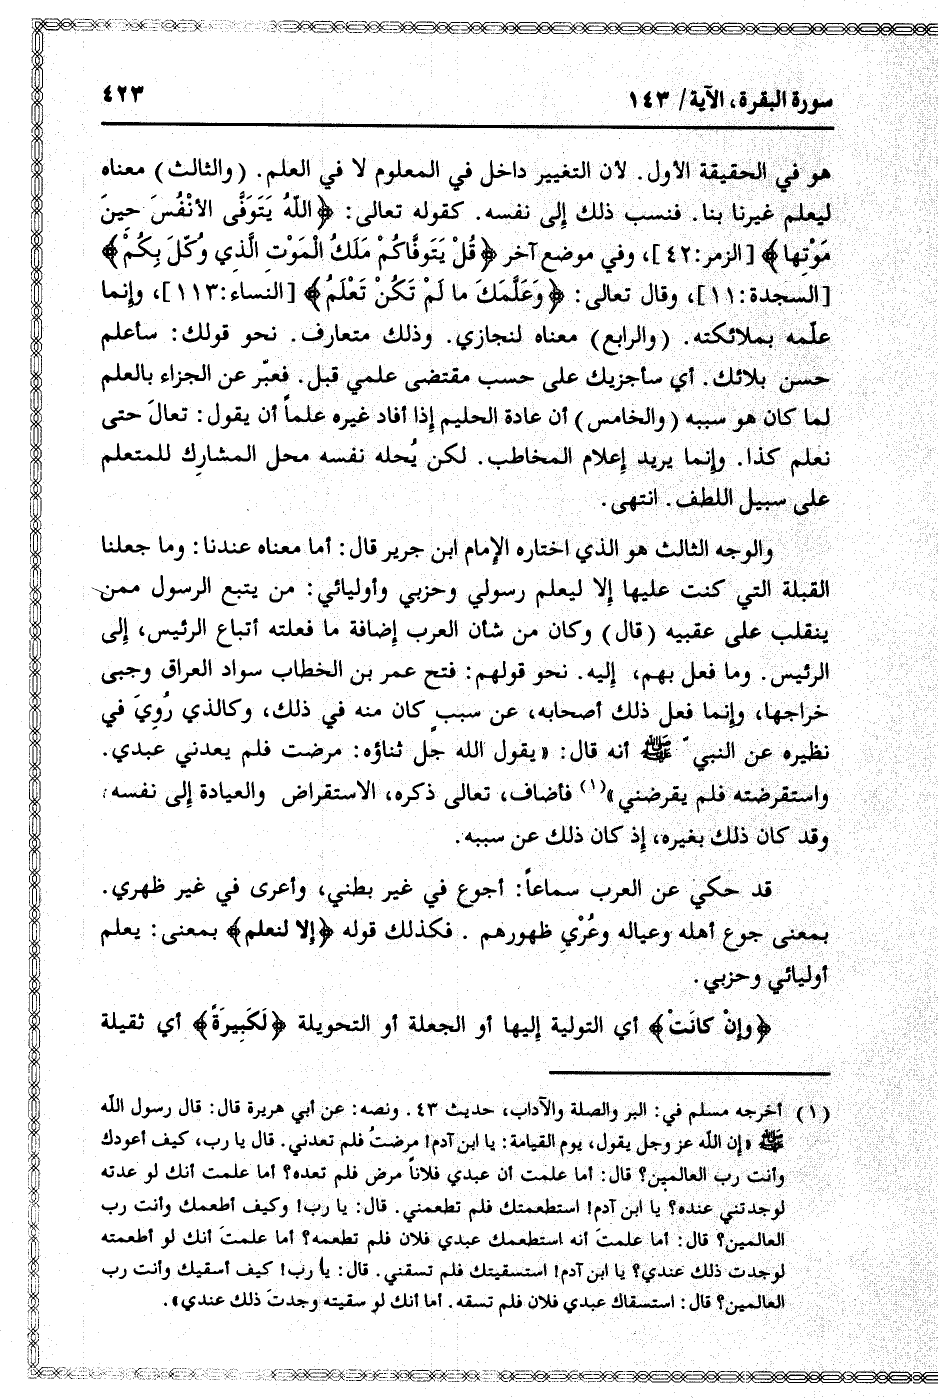 سورة البقرة، الآية/ ١٤٣
٤٢٣
هو في الحقيقة الأول. لأن التغيير داخل في المعلوم لا في العلم. (والثالث) معناه
ليعلم غيرنا بنا. فنسب ذلك إلى نفسه. كقوله تعالى: ﴿اللّهُ يَتَوَفَّى الأَنْفُسَ حِينَ
مَوْتِها﴾ [الزمر:٤٢]، وفي موضع آخر ﴿قُلْ يَتَوفَّاكُمْ مَلَكُ الْمَوْتِ الَّذِي وُكّلَ بِكُمْ﴾
[السجدة:١١]، وقال تعالى: ﴿وَعَلَّمَكَ ما لَمْ تَكُنْ تَعْلَمُ﴾ [النساء:١١٣]، وإنما
علّمه بملائكته. (والرابع) معناه لنجازي. وذلك متعارف. نحو قولك: سأعلم
حسن بلائك. أي سأجزيك على حسب مقتضى علمي قبل. فعبّر عن الجزاء بالعلم
لما كان هو سببه (والخامس) أن عادة الحليم إذا أفاد غيره علماً أن يقول: تعالَ حتى
نعلم كذا. وإنما يريد إعلام المخاطب. لكن يُحله نفسه محل المشارِك للمتعلم
على سبيل اللطف. انتهى.
والوجه الثالث هو الذي اختاره الإمام ابن جرير قال: أما معناه عندنا: وما جعلنا
القبلة التي كنت عليها إلا ليعلم رسولي وحزبي وأوليائي: من يتبع الرسول ممن
ينقلب على عقبيه (قال) وكان من شأن العرب إضافة ما فعلته أتباع الرئيس، إلى
الرئيس. وما فعل بهم، إليه. نحو قولهم: فتح عمر بن الخطاب سواد العراق وجبى
خراجها، وإنما فعل ذلك أصحابه، عن سببٍ كان منه في ذلك، وكالذي رُوِيَ في
نظيره عن النبي ﷺ أنه قال: «يقول الله جل ثناؤه: مرضت فلم يعدني عبدي.
واستقرضته فلم يقرضني»(١) فأضاف، تعالى ذكره، الاستقراض والعيادة إلى نفسه،
وقد كان ذلك بغيره، إذ كان ذلك عن سببه.
قد حكي عن العرب سماعاً: أجوع في غير بطني، وأعرى في غير ظهري.
بمعنى جوع أهله وعياله وعُرْيِ ظهورهم . فكذلك قوله ﴿إلا لنعلم﴾ بمعنى: يعلم
أوليائي وحزبي.
﴿وإنْ كانَتْ﴾ أي التولية إليها أو الجعلة أو التحويلة ﴿لَكَبِيرَةً﴾ أي ثقيلة
(١) أخرجه مسلم في: البر والصلة والآداب، حديث ٤٣ . ونصه: عن أبي هريرة قال: قال رسول اللّه
ﷺ «إن اللّه عز وجل يقول، يوم القيامة: يا ابن آدم! مرضتُ فلم تعدني. قال يا رب، كيف أعودك
وأنت رب العالمين؟ قال: أما علمت أن عبدي فلاناً مرض فلم تعده؟ أما علمت أنك لو عدته
لوجدتني عنده؟ يا ابن آدم! استطعمتك فلم تطعمني. قال: يا رب! وكيف أطعمك وأنت رب
العالمين؟ قال: أما علمتَ أنه استطعمك عبدي فلان فلم تطعمه؟ أما علمتَ أنك لو أطعمته
لوجدت ذلك عندي؟ يا ابن آدم! استسقيتك فلم تسقني. قال: يا رب! كيف أسقيك وأنت رب
العالمين؟ قال: استسقاك عبدي فلان فلم تسقه. أما أنك لو سقيته وجدتَ ذلك عندي».